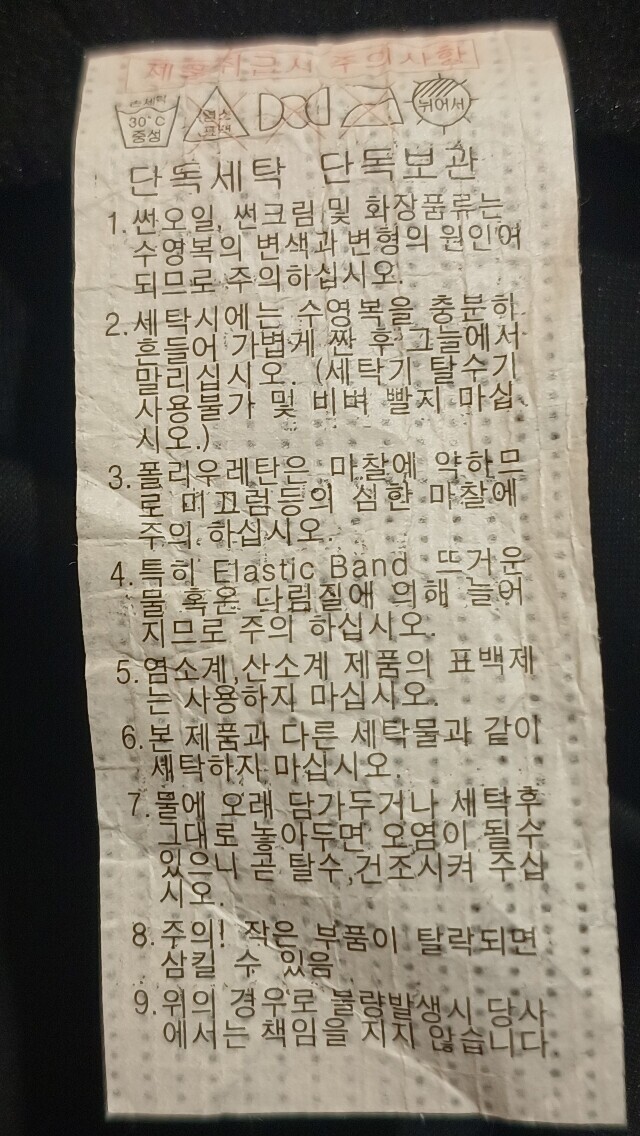 제품취급시 주의사항
손세탁 30°C 중성
염소 표백
뉘어서
단독세탁 단독보관
1. 썬오일, 썬크림 및 화장품류는
수영복의 변색과 변형의 원인여
되므로 주의하십시오.
2. 세탁시에는 수영복을 충분하
흔들어 가볍게 짠 후 그늘에서
말리십시오. (세탁기 탈수기
사용불가 및 비벼 빨지 마십
시오.)
3. 폴리우레탄은 마찰에 약하므
로 미끄럼등의 심한 마찰에
주의 하십시오.
4. 특히 Elastic Band 뜨거운
물 혹은 다림질에 의해 늘어
지므로 주의 하십시오.
5. 염소계,산소계 제품의 표백제
는 사용하지 마십시오.
6. 본 제품과 다른 세탁물과 같이
세탁하지 마십시오.
7. 물에 오래 담가두거나 세탁후
그대로 놓아두면 오염이 될수
있으니 곧 탈수,건조시켜 주십
시오.
8. 주의! 작은 부품이 탈락되면
삼킬 수 있음
9. 위의 경우로 불량발생시 당사
에서는 책임을 지지 않습니다.